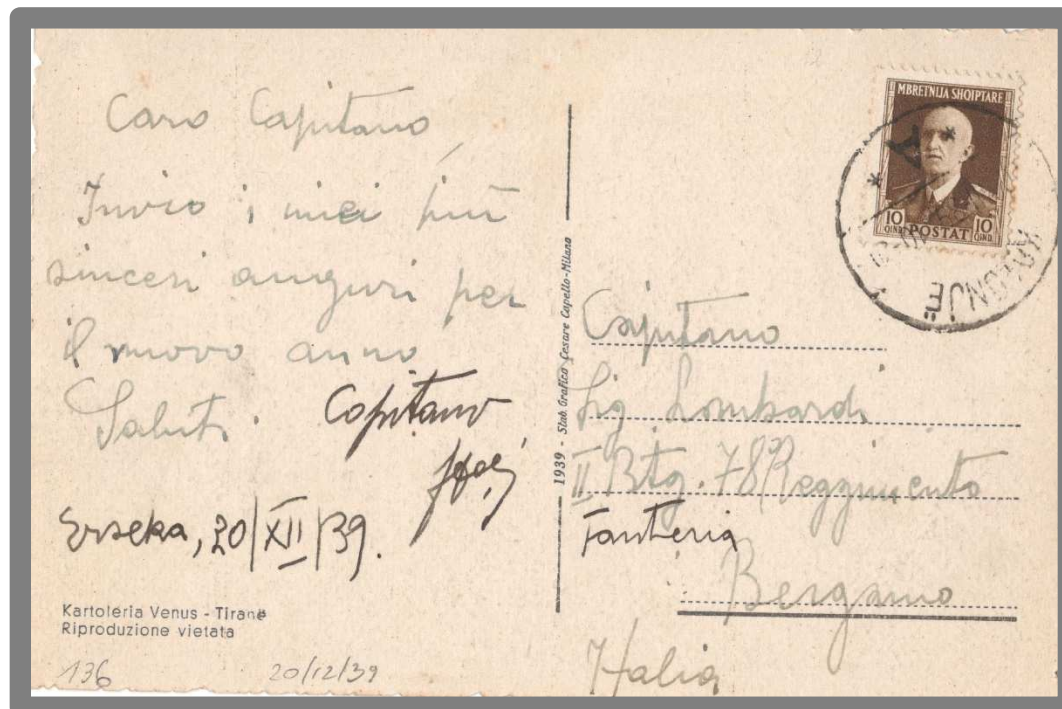 Caro Capitano,
Invio i miei più
sinceri auguri per
il nuovo anno
Saluti.
Capitano
Erseka, 20/XII/39.
Kartoleria Venus - Tiranë
Riproduzione vietata
136
20/12/39
1939 - Stab. Grafica Cesare Capello-Milano
MBRETNIJA SHQIPTARE
10 QIND. POSTAT 10 QIND.
KOLONJË
Capitano
Sig Lombardi
II Btg. 78 Reggimento
Fanteria
Bergamo
Italia